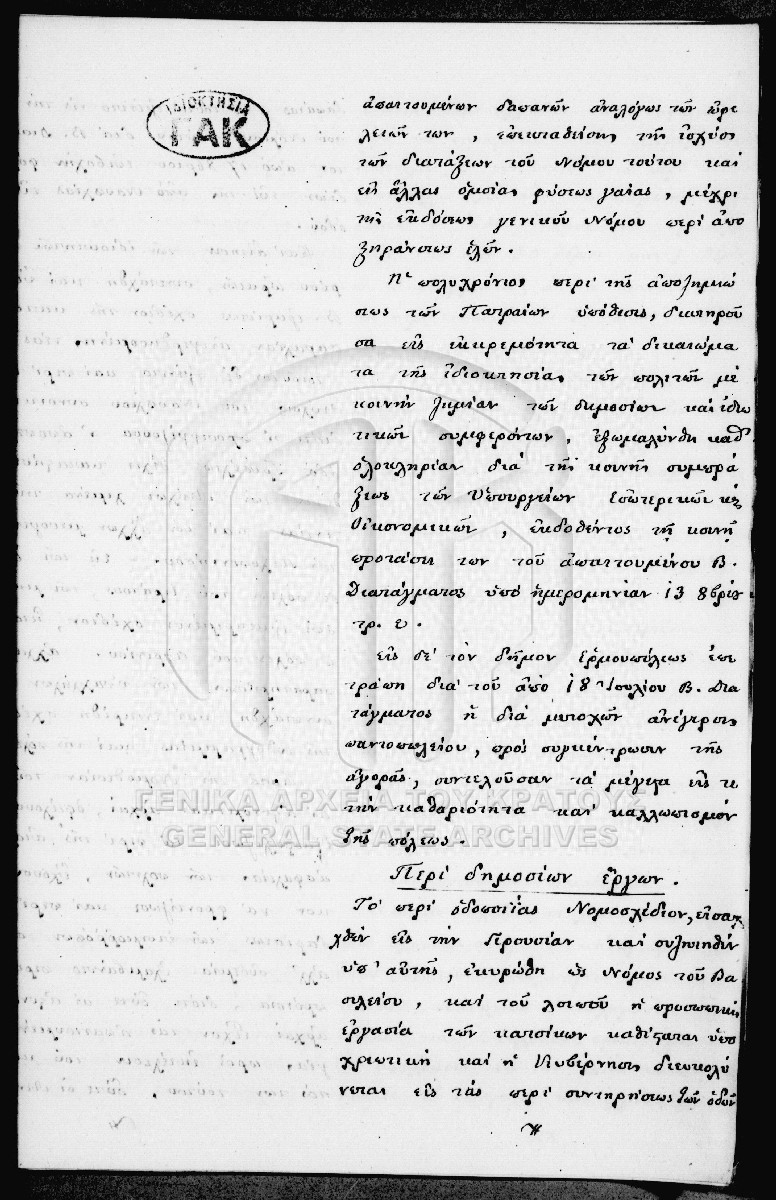 ΙΔΙΟΚΤΗΣΙΑ
ΓΑΚ
ἀπαιτουμένων δαπανῶν ἀναλόγως τῶν ὠφε
λειῶν των, ἐπεκταθείσης τῆς ἰσχύος
τῶν διατάξεων τοῦ Νόμου τούτου καὶ
εἰς ἄλλας ὁμοίας φύσεως γαίας, μέχρι
τῆς ἐκδόσεως γενικοῦ Νόμου περὶ ἀπο
ξηράνσεως ἑλῶν.
Ἡ πολυχρόνιος περὶ τῆς ἀποζημιώ
σεως τῶν Πατραίων ὑπόθεσις, διατηροῦ
σα εἰς ἐκκρεμότητα τὰ δικαιώμα
τα τῆς ἰδιοκτησίας τῶν πολιτῶν μὲ
κοινὴν ζημίαν τῶν δημοσίων καὶ ἰδιω
τικῶν συμφερόντων, ἐξωμαλύνθη καθ'
ὁλοκληρίαν διὰ τῆς κοινῆς συμπρά
ξεως τῶν Ὑπουργείων Ἐσωτερικῶν κ̀
Οἰκονομικῶν, ἐκδοθέντος τῇ κοινῇ
προτάσει των τοῦ ἀπαιτουμένου Β.
Διατάγματος ὑπὸ ἡμερομηνίαν 13 8βρίου
τρ. ἔ.
Εἰς δὲ τὸν δῆμον Ἑρμουπόλεως ἐπε
τράπη διὰ τοῦ ἀπὸ 18 Ἰουλίου Β. Δια
τάγματος ἡ διὰ μετοχῶν ἀνέγερσις
παντοπωλείου, πρὸς συγκέντρωσιν τῆς
ἀγορᾶς, συντελοῦσαν τὰ μέγιστα εἴς τε
τὴν καθαριότητα καὶ καλλωπισμὸν
τῆς πόλεως.
ΓΕΝΙΚΑ ΑΡΧΕΙΑ ΤΟΥ ΚΡΑΤΟΥΣ
GENERAL STATE ARCHIVES
Περὶ δημοσίων ἔργων.
Τὸ περὶ ὁδοποιΐας Νομοσχέδιον, εἰσαχ
χθὲν εἰς τὴν Γερουσίαν καὶ συζητηθὲν
ὑπ' αὐτῆς, ἐκυρώθη ὡς Νόμος τοῦ Βα
σιλείου, καὶ τοῦ λοιποῦ ἡ προσωπικὴ
ἐργασία τῶν κατοίκων καθίσταται ὑπο
χρεωτικὴ καὶ ἡ Κυβέρνησις διευκολύ
νεται εἰς τὰς περὶ συντηρήσεως τῶν ὁδῶν